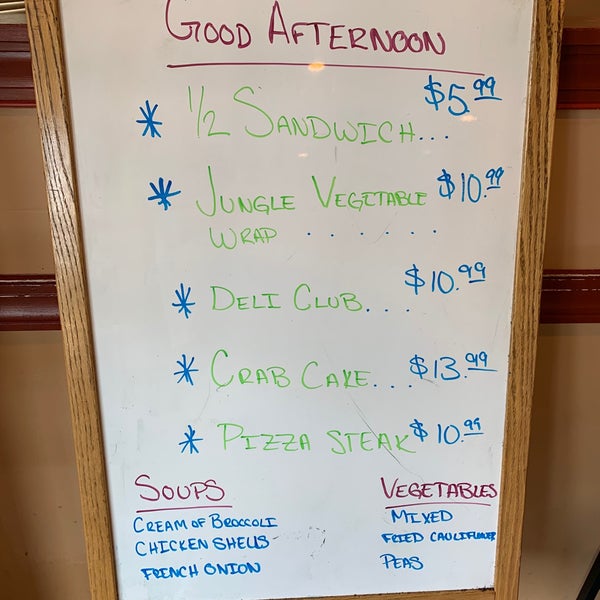 GOOD AFTERNOON
* 1/2 SANDWICH... $5.99
* JUNGLE VEGETABLE $10.99
WRAP . . . . . .
* DELI CLUB... $10.99
* CRAB CAKE... $13.99
* PIZZA STEAK $10.99
SOUPS
CREAM OF BROCCOLI
CHICKEN SHELLS
FRENCH ONION
VEGETABLES
MIXED
FRIED CAULIFLOWER
PEAS